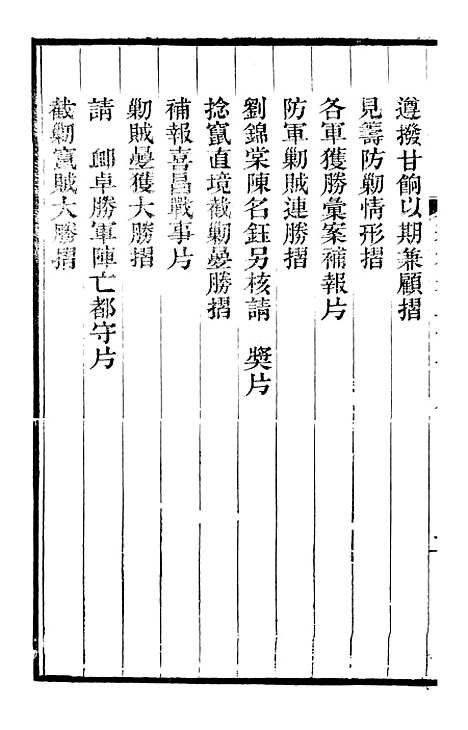 遵撥甘餉以期兼顧摺
見籌防勦情形摺
各軍獲勝彙案補報片
防軍勦賊連勝摺
劉錦棠陳名鈺另核請　奬片
捻竄直境截勦曡勝摺
補報喜昌戰事片
勦賊曡獲大勝摺
請　卹卓勝軍陣亡都守片
截勦竄賊大勝摺